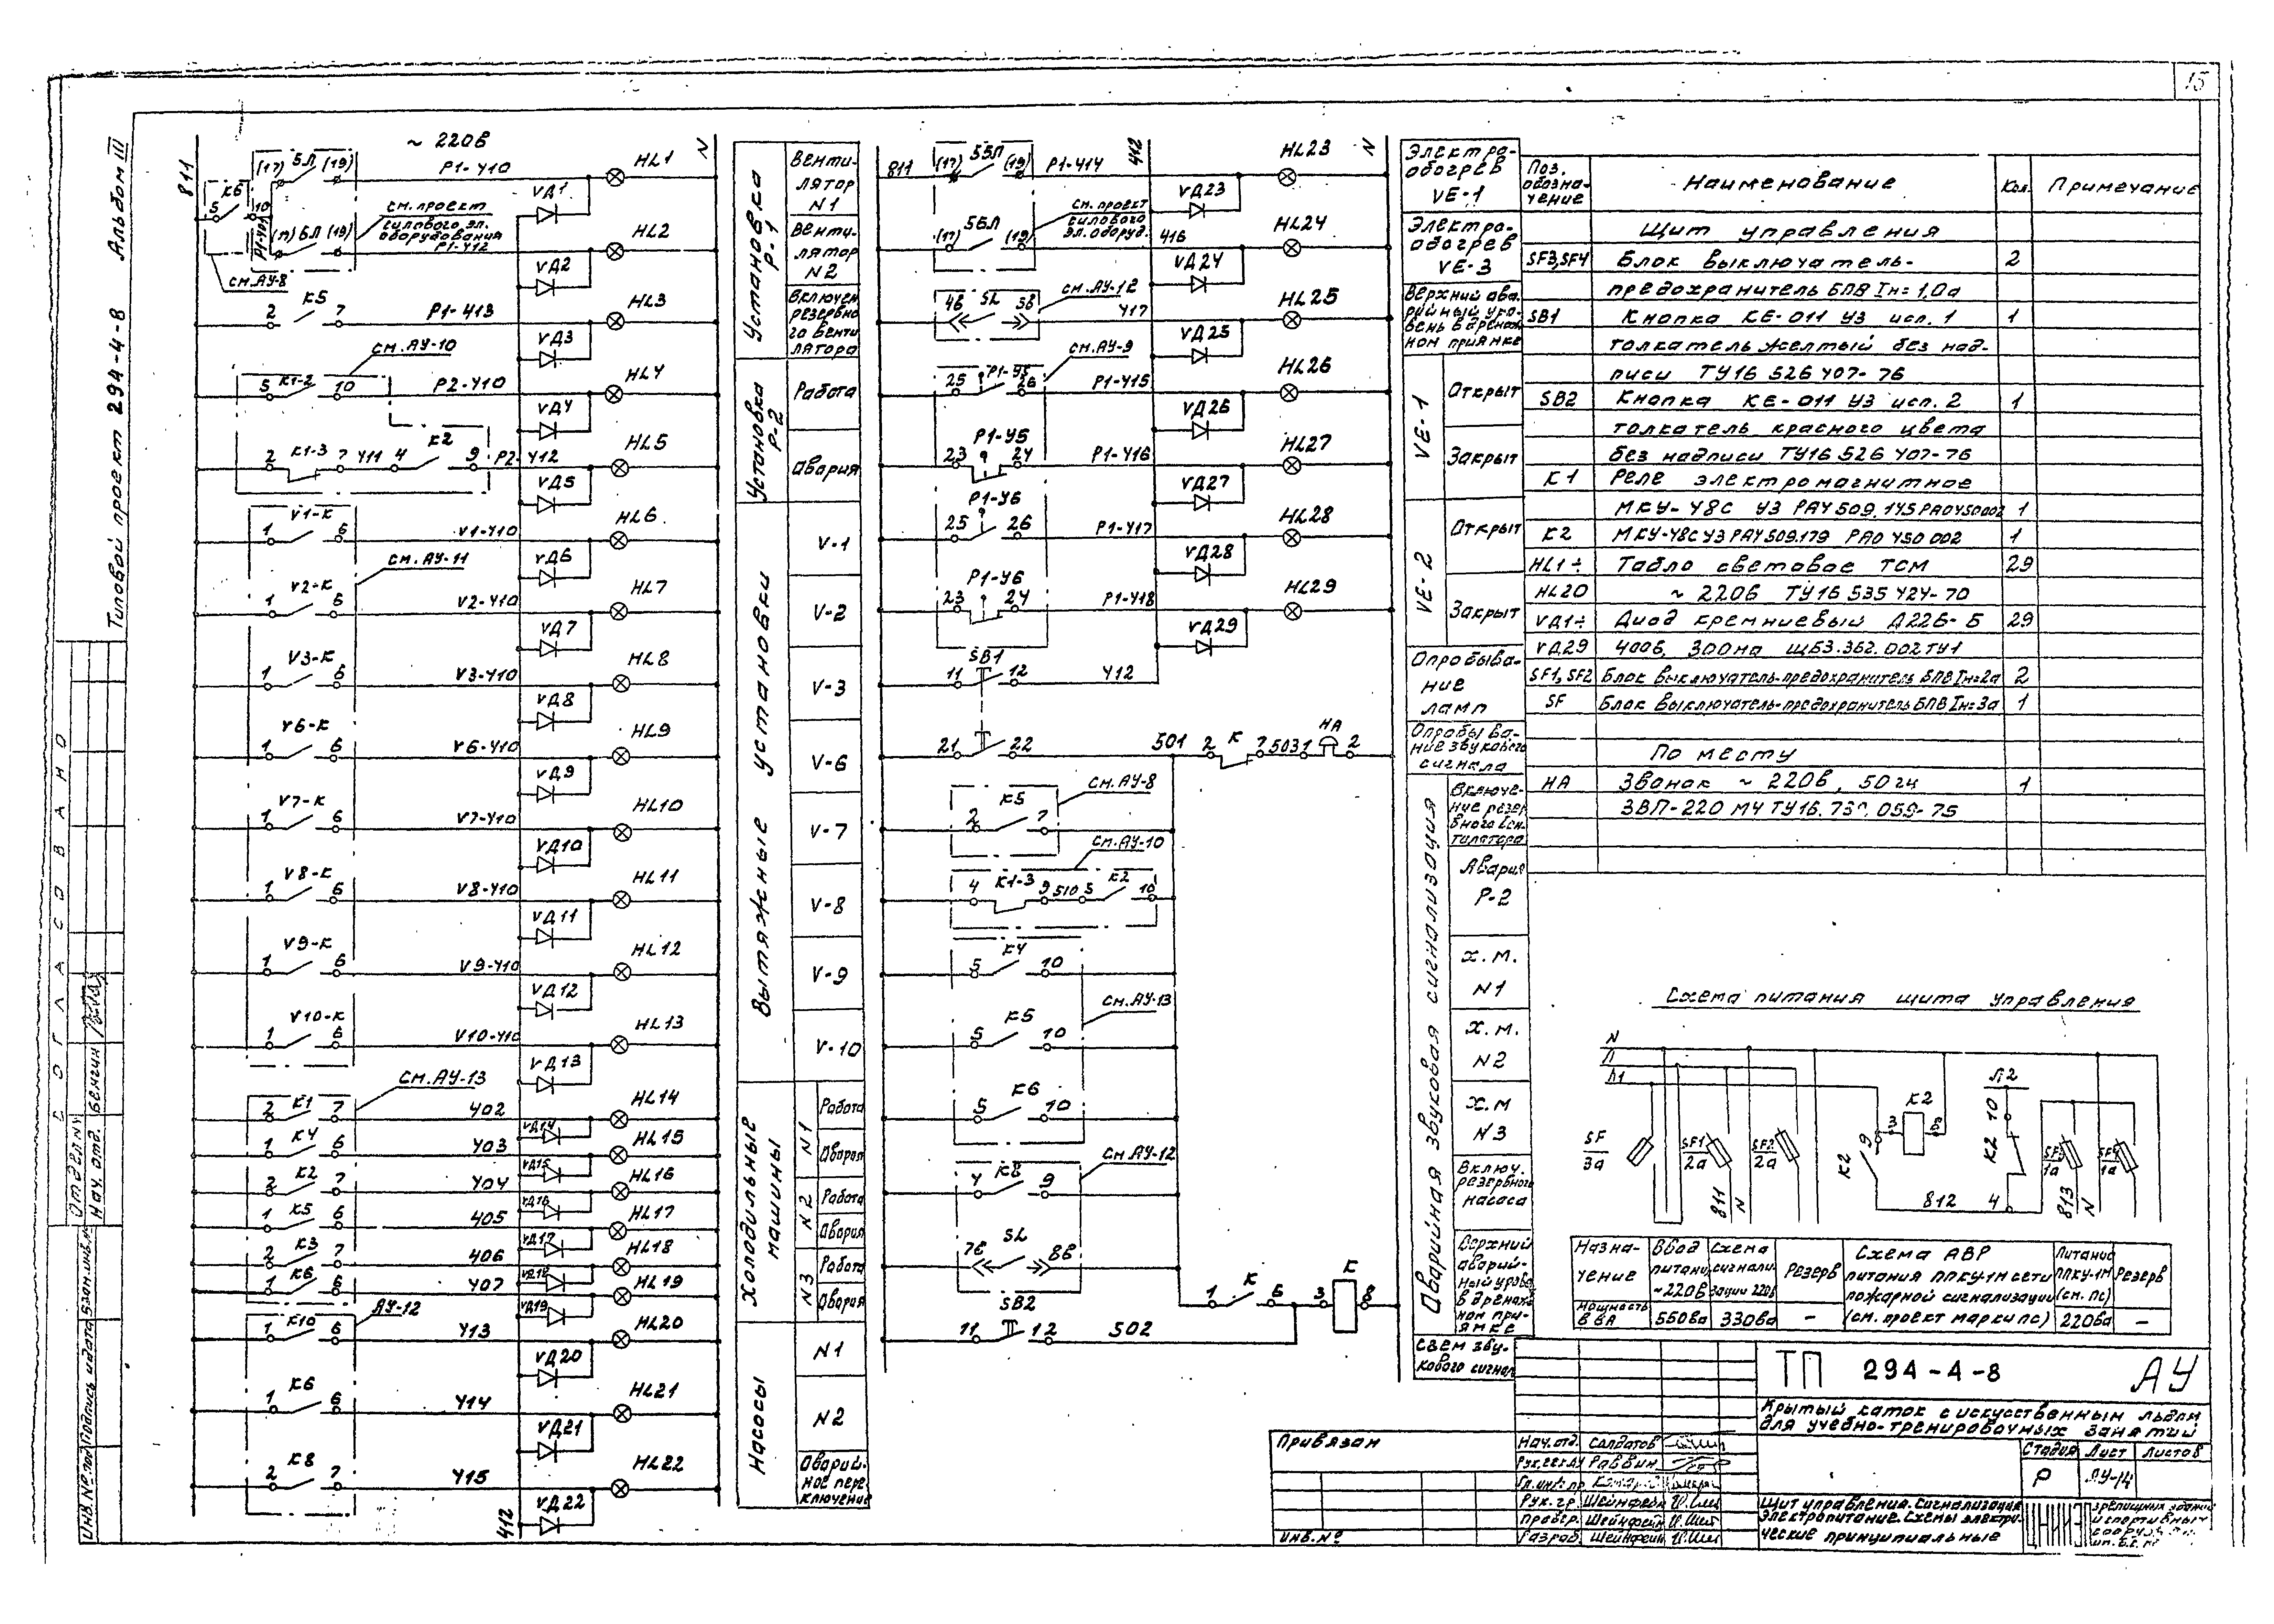 15
Типовой проект 294-4-8 Альбом III
СОГЛАСОВАНО
Нач. отд. Бенгин
Инв. № под. Подпись и дата Взам. инв. №
811
~ 220в
N
(17) 5Л (19) Р1-410 HL1
К6
5 10
VД1
см. проект
силового эл.
оборудования
(17) 6Л (19) Р1-412 HL2
см. АУ-8
VД2
2 К5 7 Р1-413 HL3
VД3
см. АУ-10
5 К1-2 10 Р2-410 HL4
VД4
2 К1-3 7 411 4 К2 9 Р2-412 HL5
VД5
V1-К
1 6 V1-410 HL6
VД6
см. АУ-11
V2-К
1 6 V2-410 HL7
VД7
V3-К
1 6 V3-410 HL8
VД8
V6-К
1 6 V6-410 HL9
VД9
V7-К
1 6 V7-410 HL10
VД10
V8-К
1 6 V8-410 HL11
VД11
V9-К
1 6 V9-410 HL12
VД12
V10-К
1 6 V10-410 HL13
VД13
см. АУ-13
2 К1 7 402 HL14
VД14
1 К4 6 403 HL15
VД15
2 К2 7 404 HL16
VД16
1 К5 6 405 HL17
VД17
2 К3 7 406 HL18
VД18
1 К6 6 407 HL19
VД19
АУ-12
1 К10 6 413 HL20
VД20
1 К6 6 414 HL21
VД21
2 К8 7 415 HL22
412 VД22
Установка Р-1
Венти-
лятор
N1
Венти-
лятор
N2
Включен.
резервно-
го венти-
лятора
Установка Р-2
Работа
Авария
Вытяжные установки
V-1
V-2
V-3
V-6
V-7
V-8
V-9
V-10
Холодильные машины
N1 Работа
Авария
N2 Работа
Авария
N3 Работа
Авария
Насосы
N1
N2
Аварий-
ное пере-
ключение
811 (17) 55Л (19) Р1-414 412 HL23 N
VД23
см. проект
силового
эл. оборуд.
(17) 56Л (19) 416 HL24
VД24
см. АУ-12
4б SL 5б 417 HL25
VД25
см. АУ-9
25 Р1-У5 26 Р1-415 HL26
VД26
Р1-У5
23 24 Р1-416 HL27
VД27
Р1-У6
25 26 Р1-417 HL28
VД28
Р1-У6
23 24 Р1-418 HL29
VД29
SB1
11 12 412
21 22 501 2 К 7 503 1 НА 2
см. АУ-8
К5
2 7
см. АУ-10
4 К1-3 9 510 5 К2 10
К4
5 10
см. АУ-13
К5
5 10
К6
5 10
см. АУ-12
К8
4 9
SL
7в 8в
1 К 6 3 К 8
SB2
11 12 502
Электро-
обогрев
VE-1
Электро-
обогрев
VE-3
Верхний ава-
рийный уро-
вень в дренаж-
ном приямке
VE-1
Открыт
Закрыт
VE-2
Открыт
Закрыт
Опробыва-
ние
ламп
Опробыва-
ние звукового
сигнала
Аварийная звуковая сигнализация
Включе-
ние резер-
вного вен-
тилятора
Авария
Р-2
Х.М.
N1
Х.М.
N2
Х.М
N3
Включ.
резервного
насоса
Верхний
аварий-
ный уров.
в дренаж-
ном при-
ямке
Съем зву-
кового сигнал
Поз. обозна-чение Наименование Кол. Примечание
Щит управления
SF3,SF4 Блок выключатель- 2
предохранитель БПВ Iн=1,0а
SB1 Кнопка КЕ-011 У3 исп. 1 1
толкатель желтый без над-
писи ТУ16 526 407-76
SB2 Кнопка КЕ-011 У3 исп. 2 1
толкатель красного цвета
без надписи ТУ16 526 407-76
К1 Реле электромагнитное
МКУ-48С У3 РА4 509.145 РА0450002 1
К2 МКУ-48С У3 РА4 509.179 РА0 450 002 1
HL1÷ Табло световое ТСМ 29
HL20 ~ 220в ТУ16 535 424-70
VД1÷ Диод кремниевый Д226-Б 29
VД29 400в, 300ма ЩБ3.362.002 ТУ1
SF1, SF2 Блок выключатель-предохранитель БПВ Iн=2а 2
SF Блок выключатель-предохранитель БПВ Iн=3а 1
По месту
НА Звонок ~ 220в, 50гц 1
ЗВП-220 М4 ТУ16.739.059-75
Схема питания щита управления
N
Л
Л1
SF
3а
SF1
2а
811
N
SF2
2а
К2
9
3 К2 8
Л2
10
К2
4
812
SF3
1а
813
N
SF4
1а
Назна-
чение
Ввод
питани
~220в
Схема
сигнали-
зации 220в
Резерв
Схема АВР
питания ППКУ-1М сети
пожарной сигнализации
(см. проект марки ПС)
Питание
ППКУ-1М
(см. ПС)
Резерв
Мощность
в ВА
550ва 330ва – 220ва –
ТП 294-4-8 АУ
Крытый каток с искусственным льдом
для учебно-тренировочных занятий
Стадия Лист Листов
Р АУ-14
Щит управления. Сигнализация
Электропитание. Схемы электри-
ческие принципиальные
зрелищных зданий
и спортивных
Привязан
Инв. №
Нач. отд. Солдатов
Рук. сек. АУ Раввин
Гл. инж. пр.
Рук. гр. Шейнфейн
Провер. Шейнфейн
Разраб. Шейнфейн